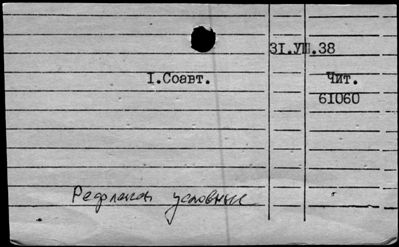 31.VIII.38
I.Соавт.
Чит.
61060
Рефлексы условные